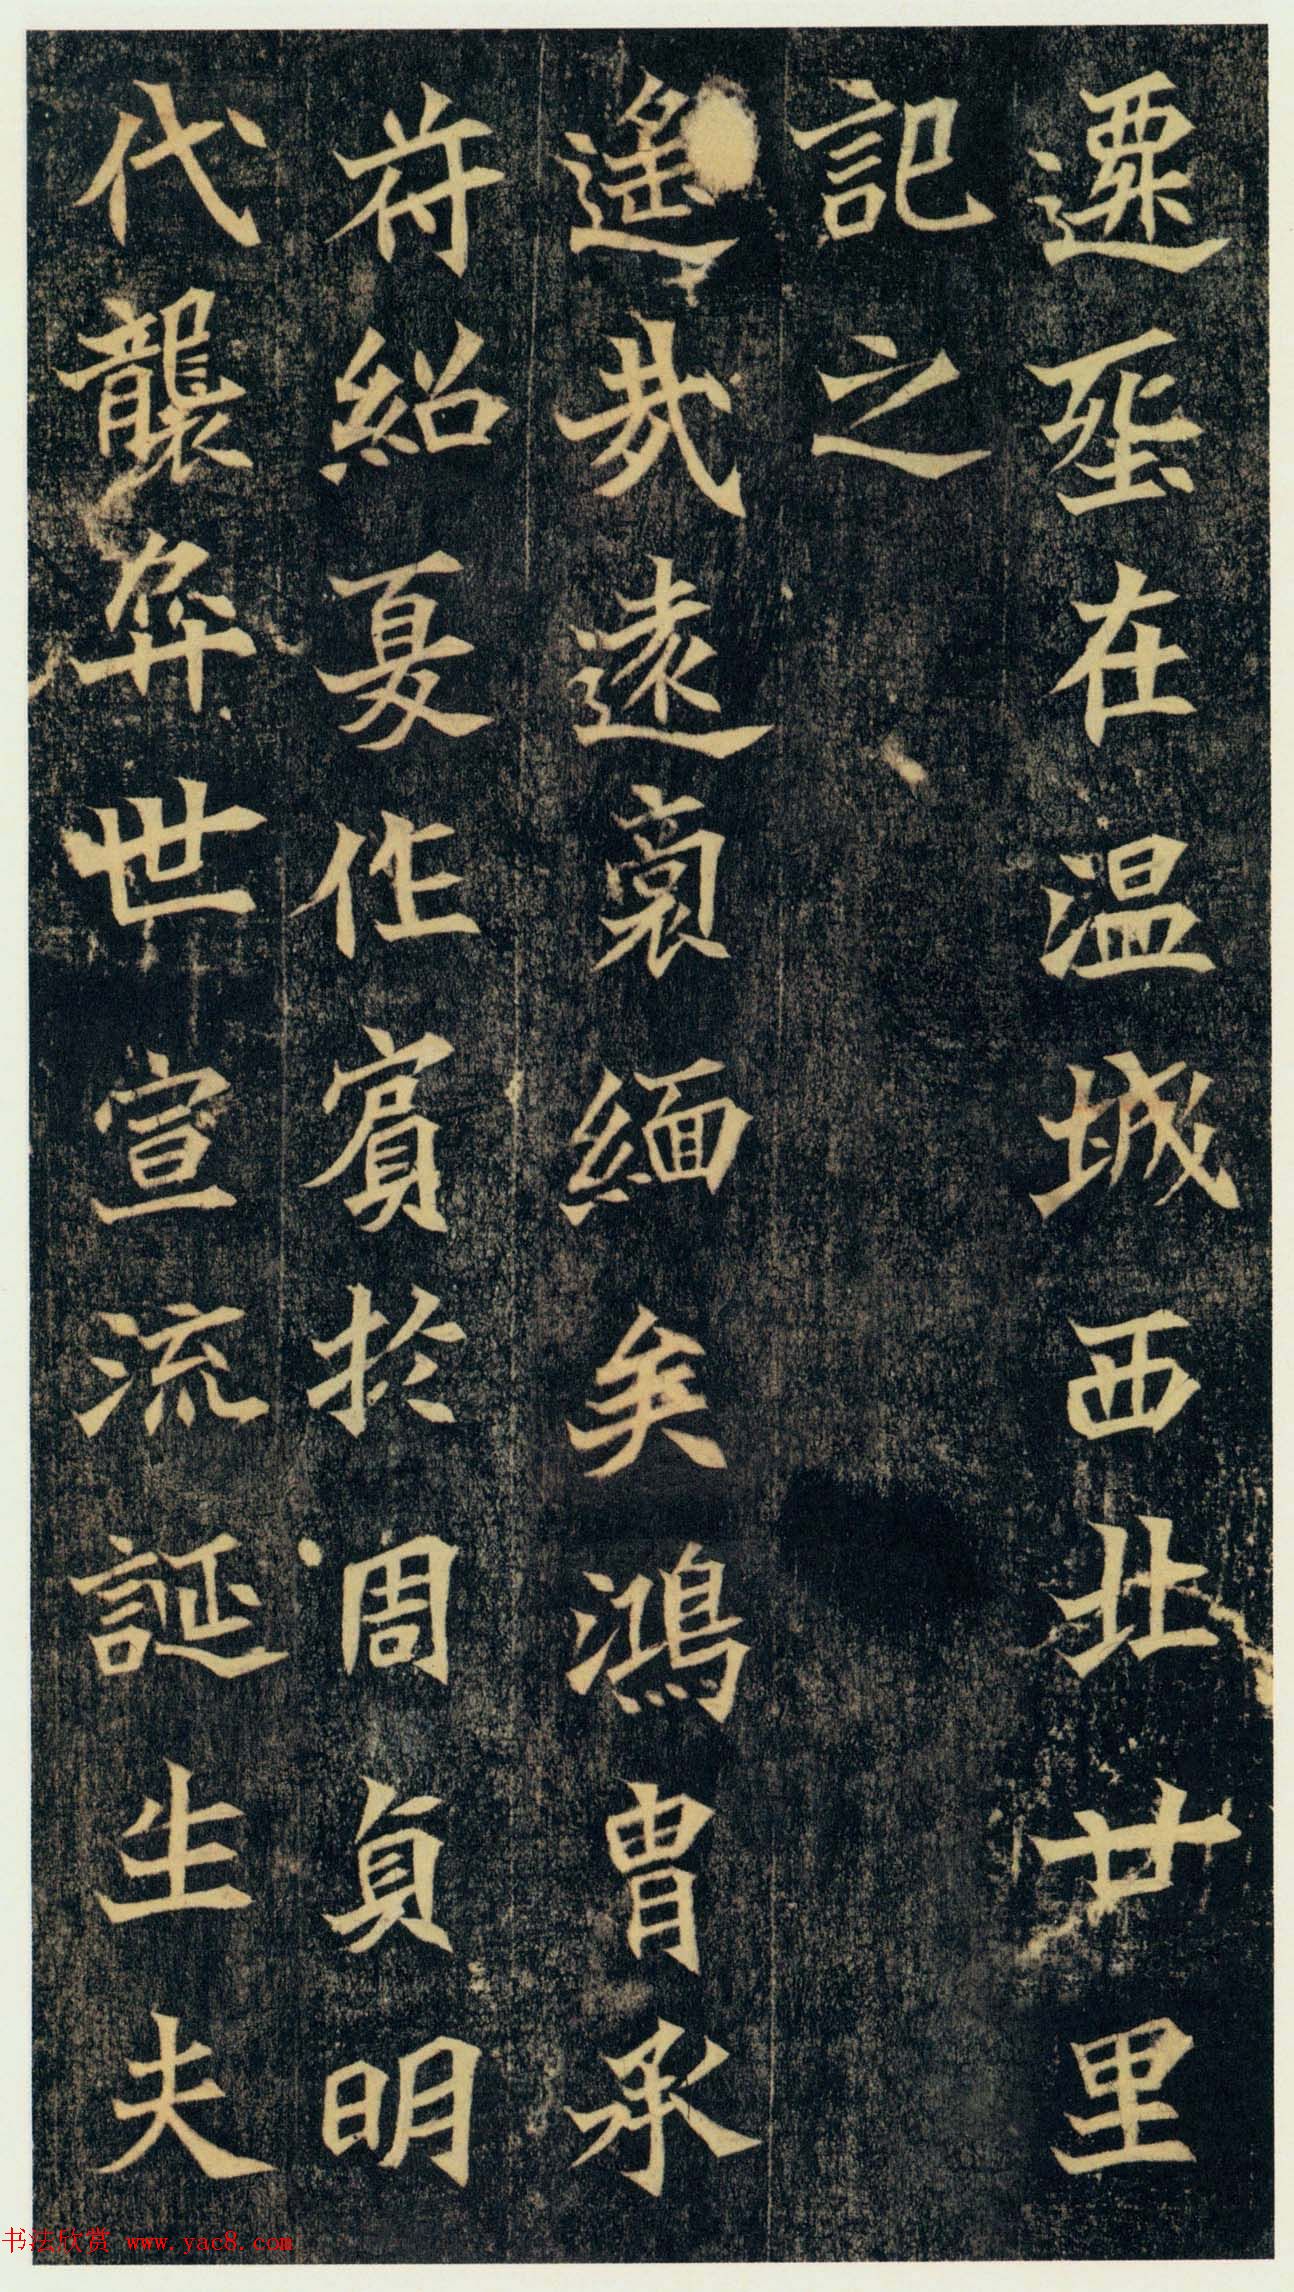 遷塟在溫城西北廿里
記之
遙哉遠裔緬矣鴻胄承
苻紹夏作賓於周貞明
代襲弈世宣流誕生夫
书法欣赏 www.yac8.com